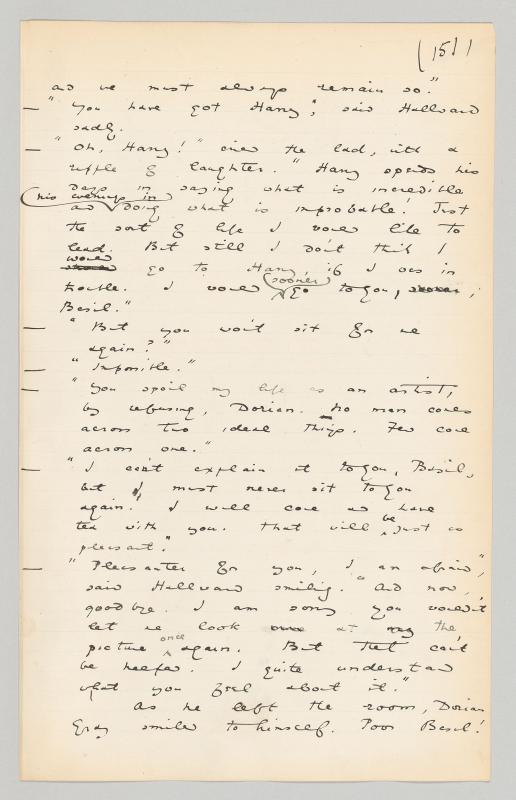 (151)
and we must always remain so."
"You have got Harry", said Hallward
sadly.
"Oh, Harry!" cried the lad, with a
ripple of laughter. "Harry spends his
days in saying what is incredible
his evenings in
and doing what is improbable. Just
the sort of life I would like to
lead. But still I don't think I
would
go to Harry, if I was in
sooner
trouble. I would go to you,
Basil."
"But you won't sit for me
again?"
"Impossible."
"You spoil my life as an artist,
by refusing, Dorian. No man comes
across two ideal things. Few come
across one."
"I can't explain it to you, Basil,
but I must never sit to you
again. I will come and have
be
tea with you. That will just as
pleasant."
"Pleasanter for you, I am afraid",
said Hallward smiling. "And now,
goodbye. I am sorry you wouldn't
let me look once at my the
once
picture again. But that can't
be helped. I quite understand
what you feel about it."
As he left the room, Dorian
Gray smiled to himself. Poor Basil!